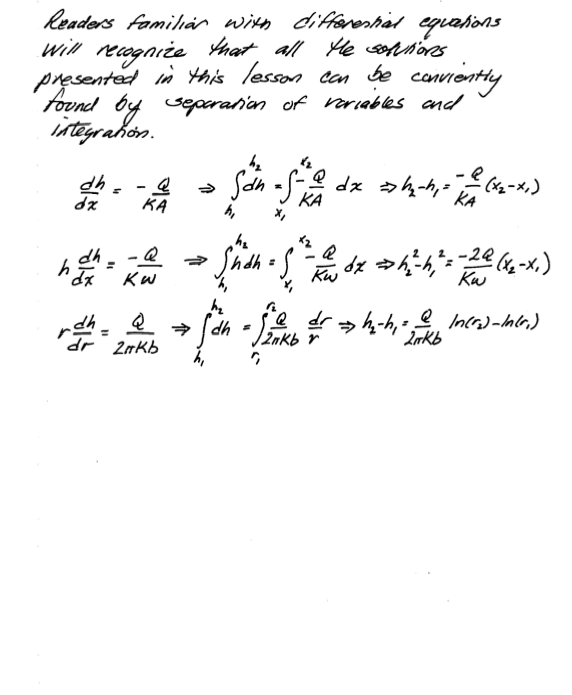 Readers familiar with differential equations
will recognize that all the solutions
presented in this lesson can be conviently
found by separation of variables and
integration.
dh/dx = - Q/KA ⇒ ∫_{h₁}^{h₂} dh = ∫_{x₁}^{x₂} - Q/KA dx ⇒ h₂-h₁ = -Q/KA (x₂-x₁)
h dh/dx = -Q/Kw ⇒ ∫_{h₁}^{h₂} h dh = ∫_{x₁}^{x₂} -Q/Kw dx ⇒ h₂²-h₁² = -2Q/Kw (x₂-x₁)
r dh/dr = Q/2πKb ⇒ ∫_{h₁}^{h₂} dh = ∫_{r₁}^{r₂} Q/2πKb dr/r ⇒ h₂-h₁ = Q/2πKb ln(r₂)-ln(r₁)